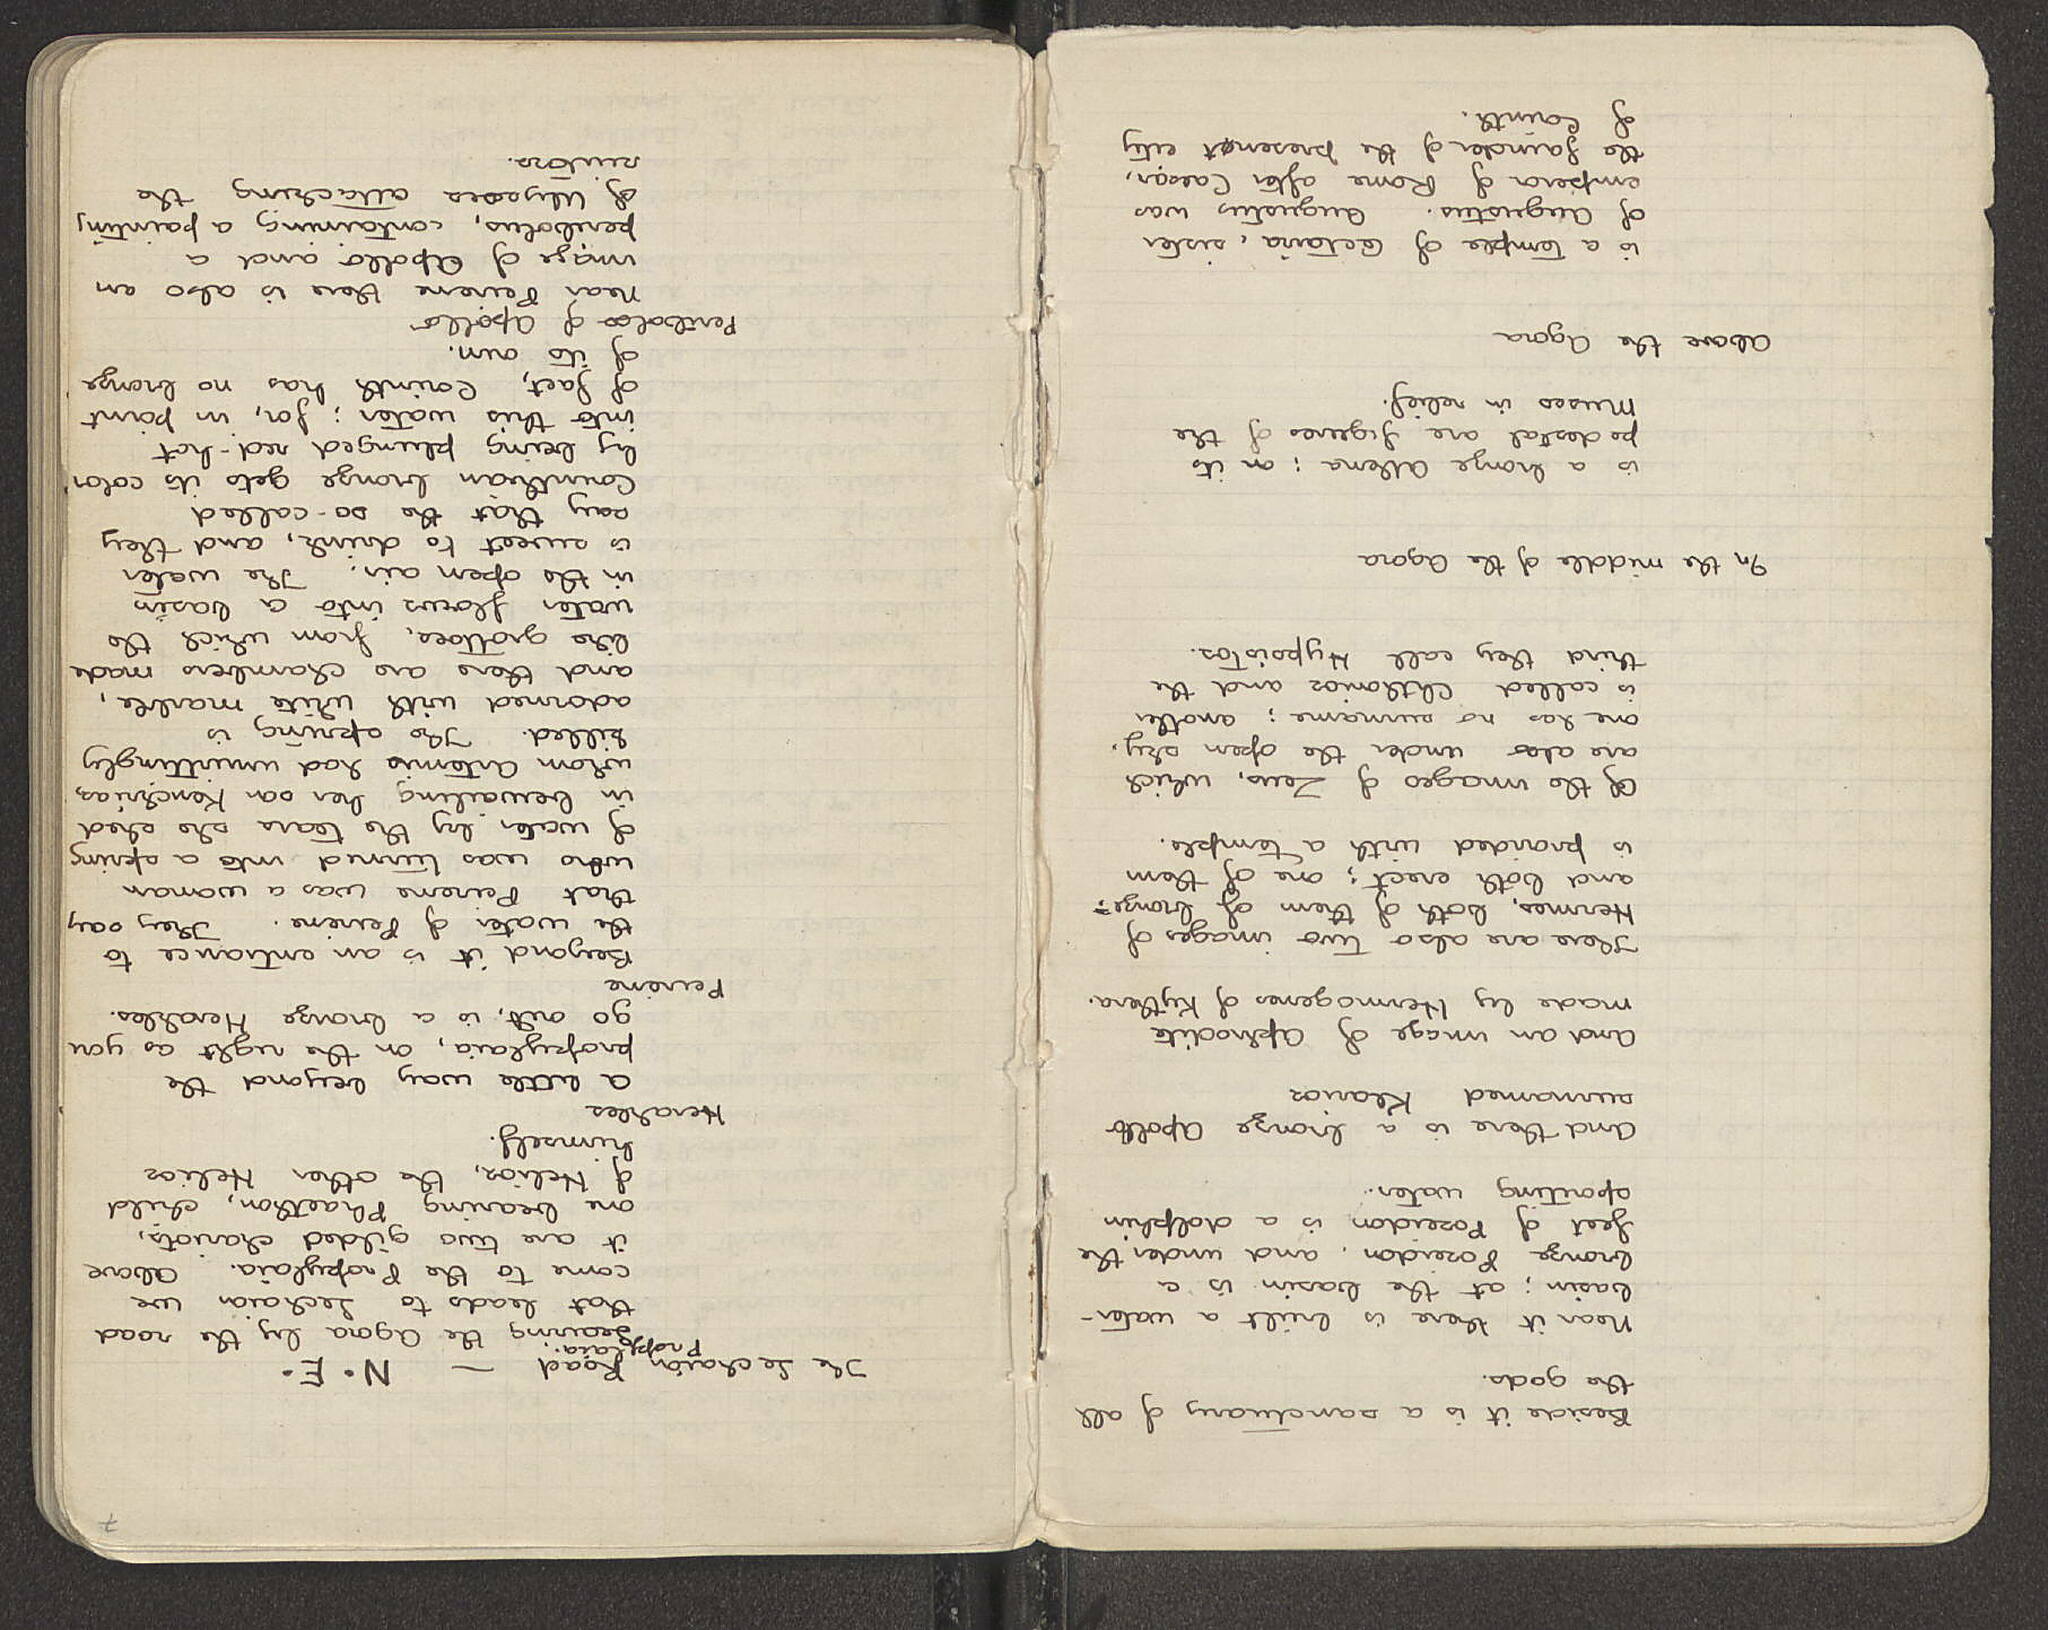 Beside it is a sanctuary of all
the gods.
Near it there is built a water-
basin; at the basin is a
bronze Poseidon, and under the
feet of Poseidon is a dolphin
spouting water.
And there is a bronze Apollo
surnamed Klarios
And an image of Aphrodite
made by Hermogenes of Kythera.
There are also two images of
Hermes, both of them of bronze
and both erect; one of them
is provided with a temple.
Of the images of Zeus, which
are also under the open sky,
one has no surname; another
is called Chthonios and the
third they call Hypsistos.
In the middle of the Agora
is a bronze Athena; on its
pedestal are figures of the
Muses in relief.
Above the Agora
is a temple of Octavia, sister
of Augustus. Augustus was
emperor of Rome after Caesar,
the founder of the present city
of Corinth.
7
The Lechaion Road — N.E.
Propylaia.
Leaving the Agora by the road
that leads to Lechaion we
come to the Propylaia. Above
it are two gilded chariots,
one bearing Phaethon, child
of Helios, the other Helios
himself.
Herakles
A little way beyond the
propylaia, on the right as you
go out, is a bronze Herakles.
Peirene
Beyond it is an entrance to
the water of Peirene. They say
that Peirene was a woman
who was turned into a spring
of water by the tears she shed
in bewailing her son Kenchrias,
whom Artemis had unwittingly
killed. The spring is
adorned with white marble,
and there are chambers made
like grottoes, from which the
water flows into a basin
in the open air. The water
is sweet to drink, and they
say that the so-called
Corinthian bronze gets its color
by being plunged red-hot
into this water; for, in point
of fact, Corinth has no bronze
of its own.
Peribolos of Apollo
Near Peirene there is also an
image of Apollo and a
peribolus, containing a painting
of Ulysses attacking the
suitors.